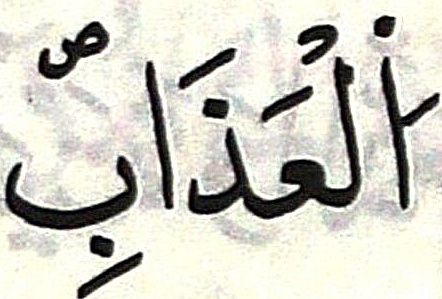 اَ۬لْعَذَابِۖ